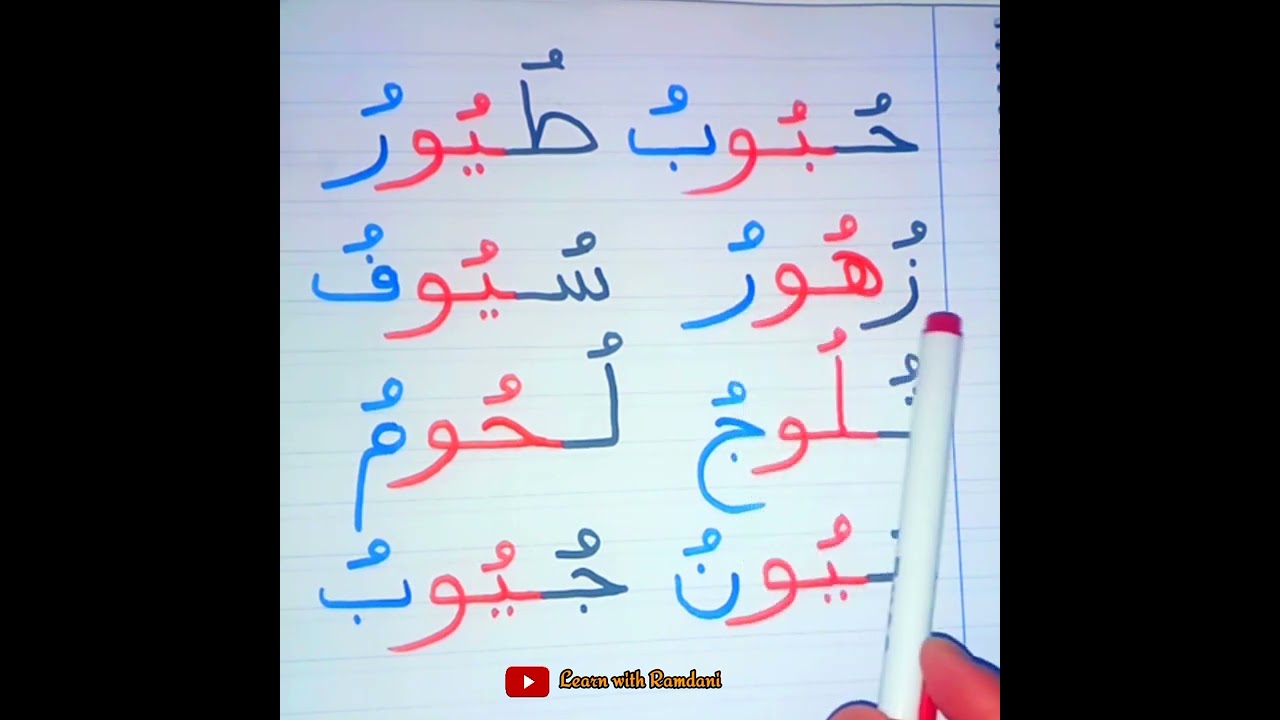 حُبُوبُ طُيُورُ
زُهُورُ سُيُوفُ
لُحُومُ
جُيُوبُ
Learn with Ramdani